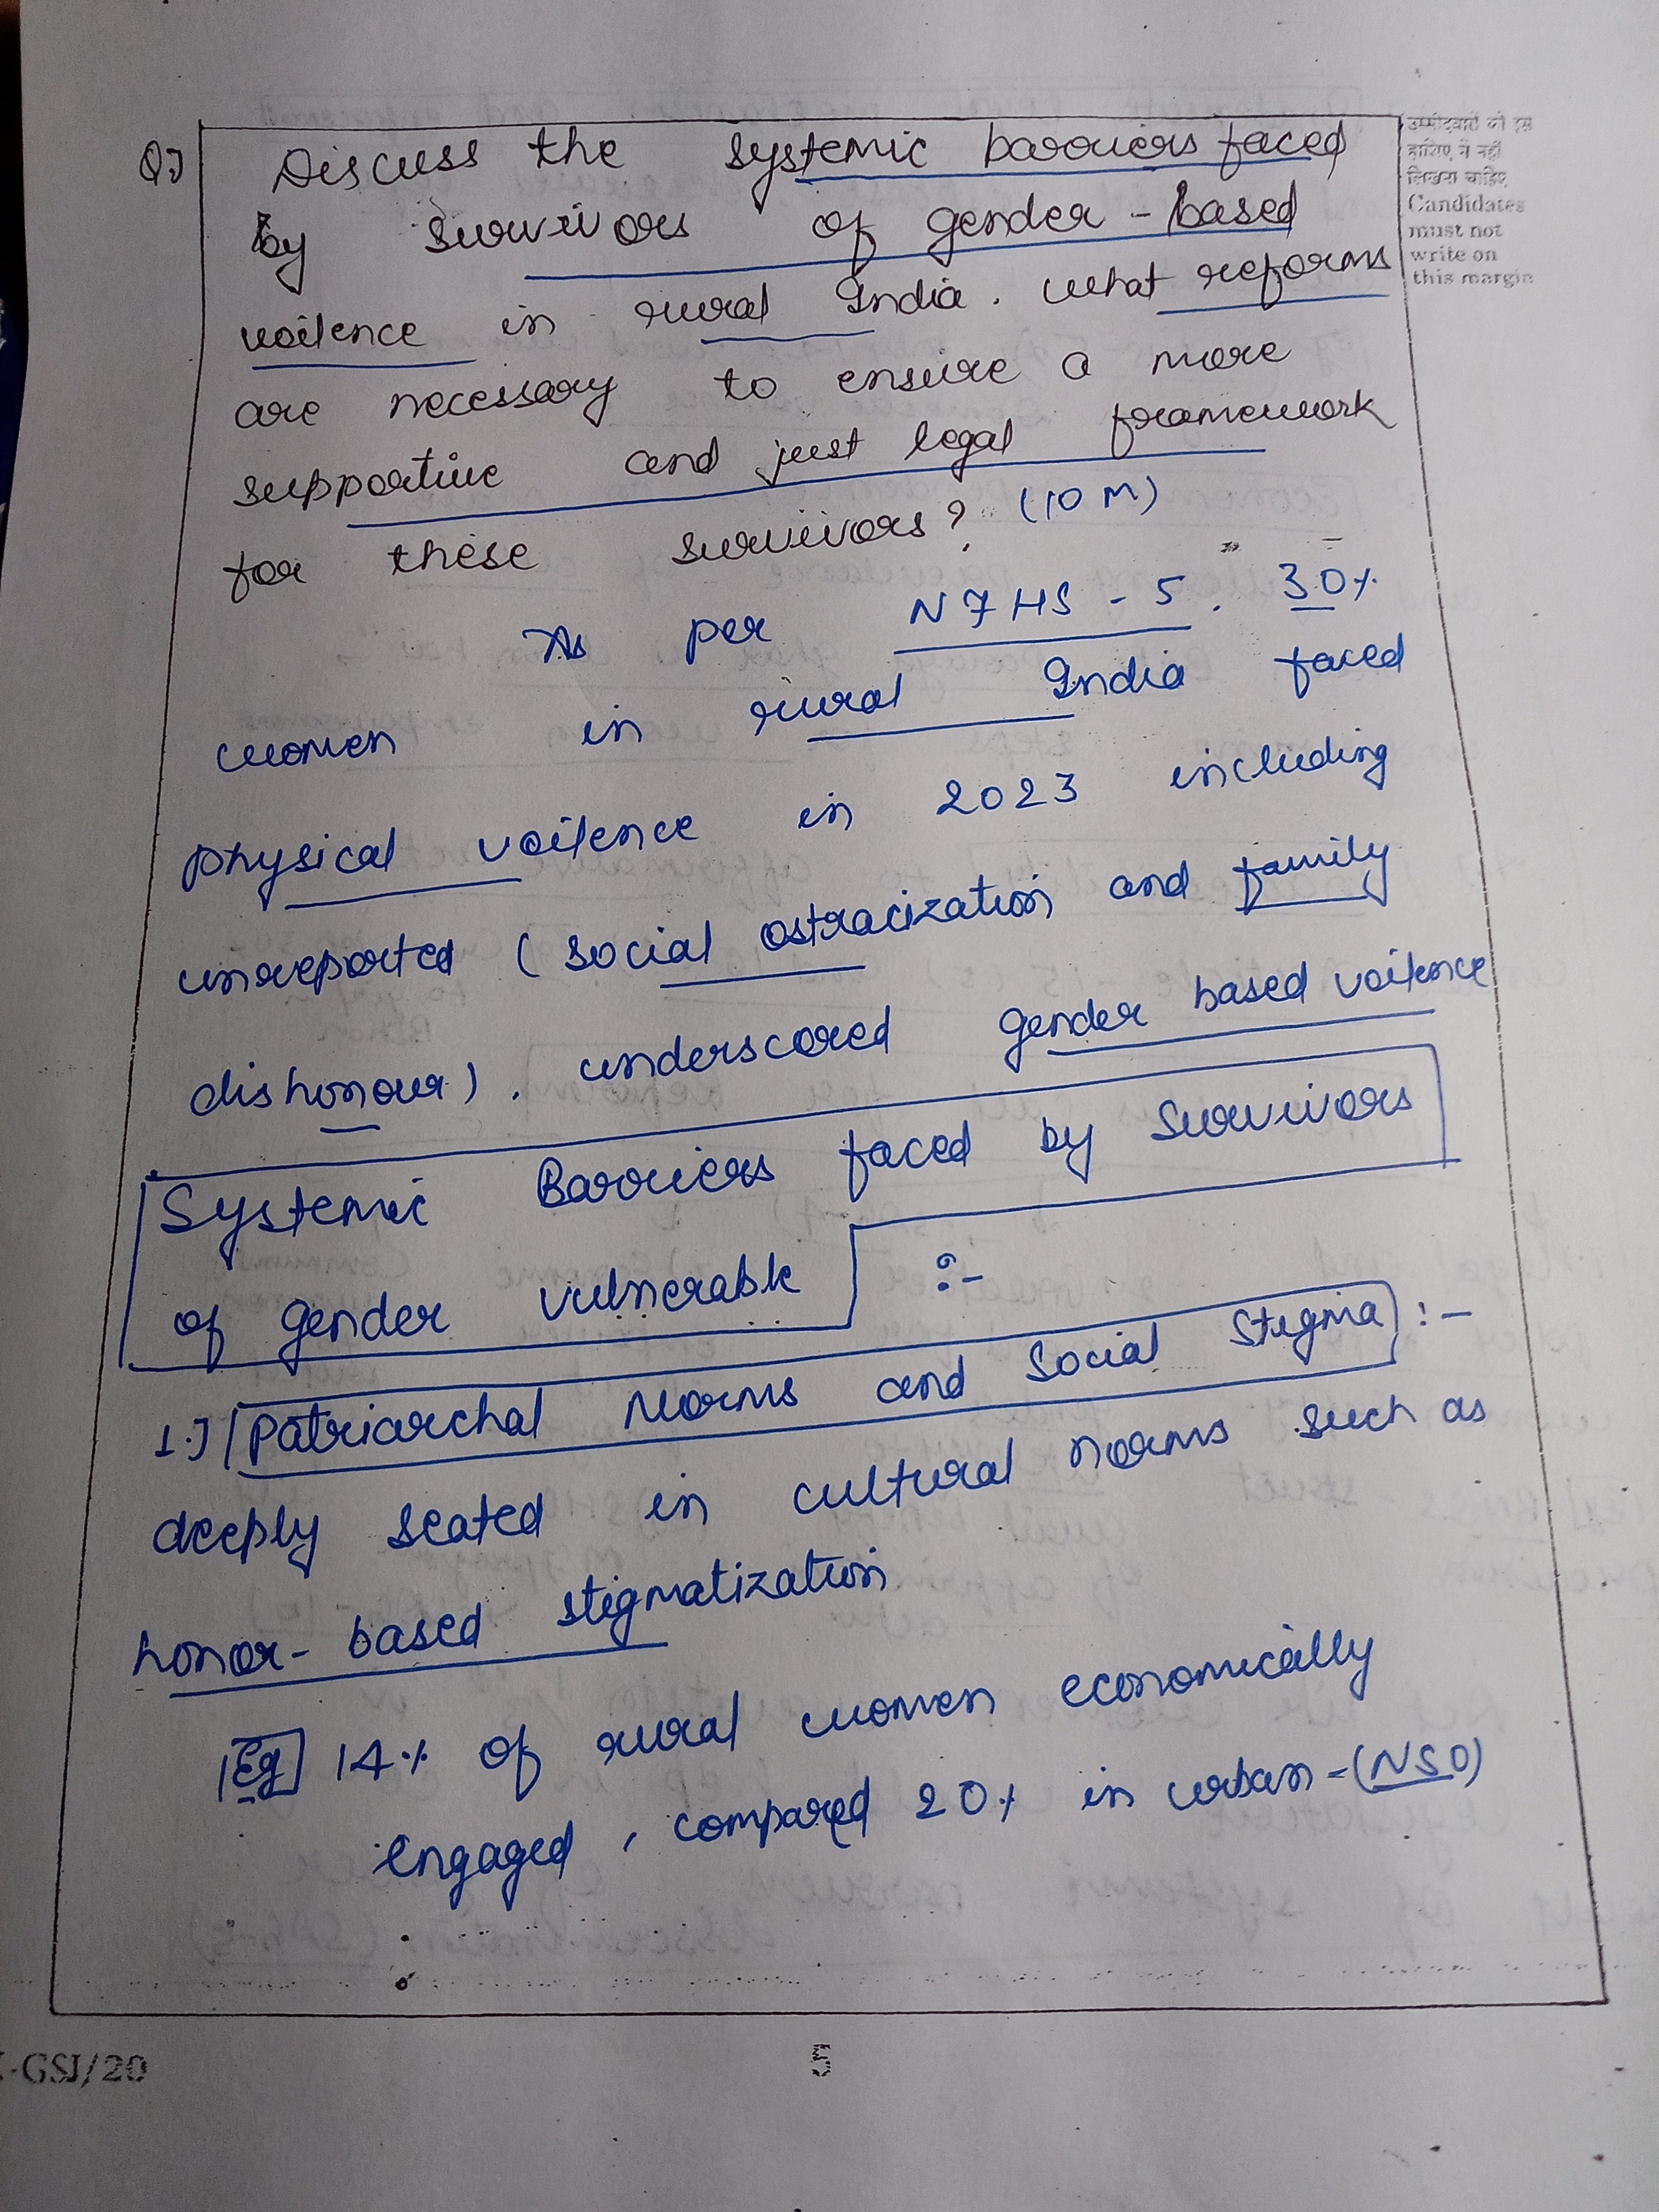 Q.] Discuss the systemic barriers faced
by survivors of gender-based
voilence in rural India. What reforms
are necessary to ensure a more
supportive and just legal framework
for these survivors? (10 M)
उम्मीदवारों को इस
हाशिए में नहीं
लिखना चाहिए
Candidates
must not
write on
this margin
As per NFHS-5. 30%
women in rural India faced
physical voilence in 2023 including
unreported (social ostracization and family
dishonour). underscored gender based voilence
Systemic Barriers faced by Survivors
of gender vulnerable :-
1.] Patriarchal Norms and Social Stigma :-
deeply seated in cultural norms such as
honor-based stigmatization
Eg 14% of rural women economically
engaged, compared 20% in urban-(NSO)
-GSI/20
5